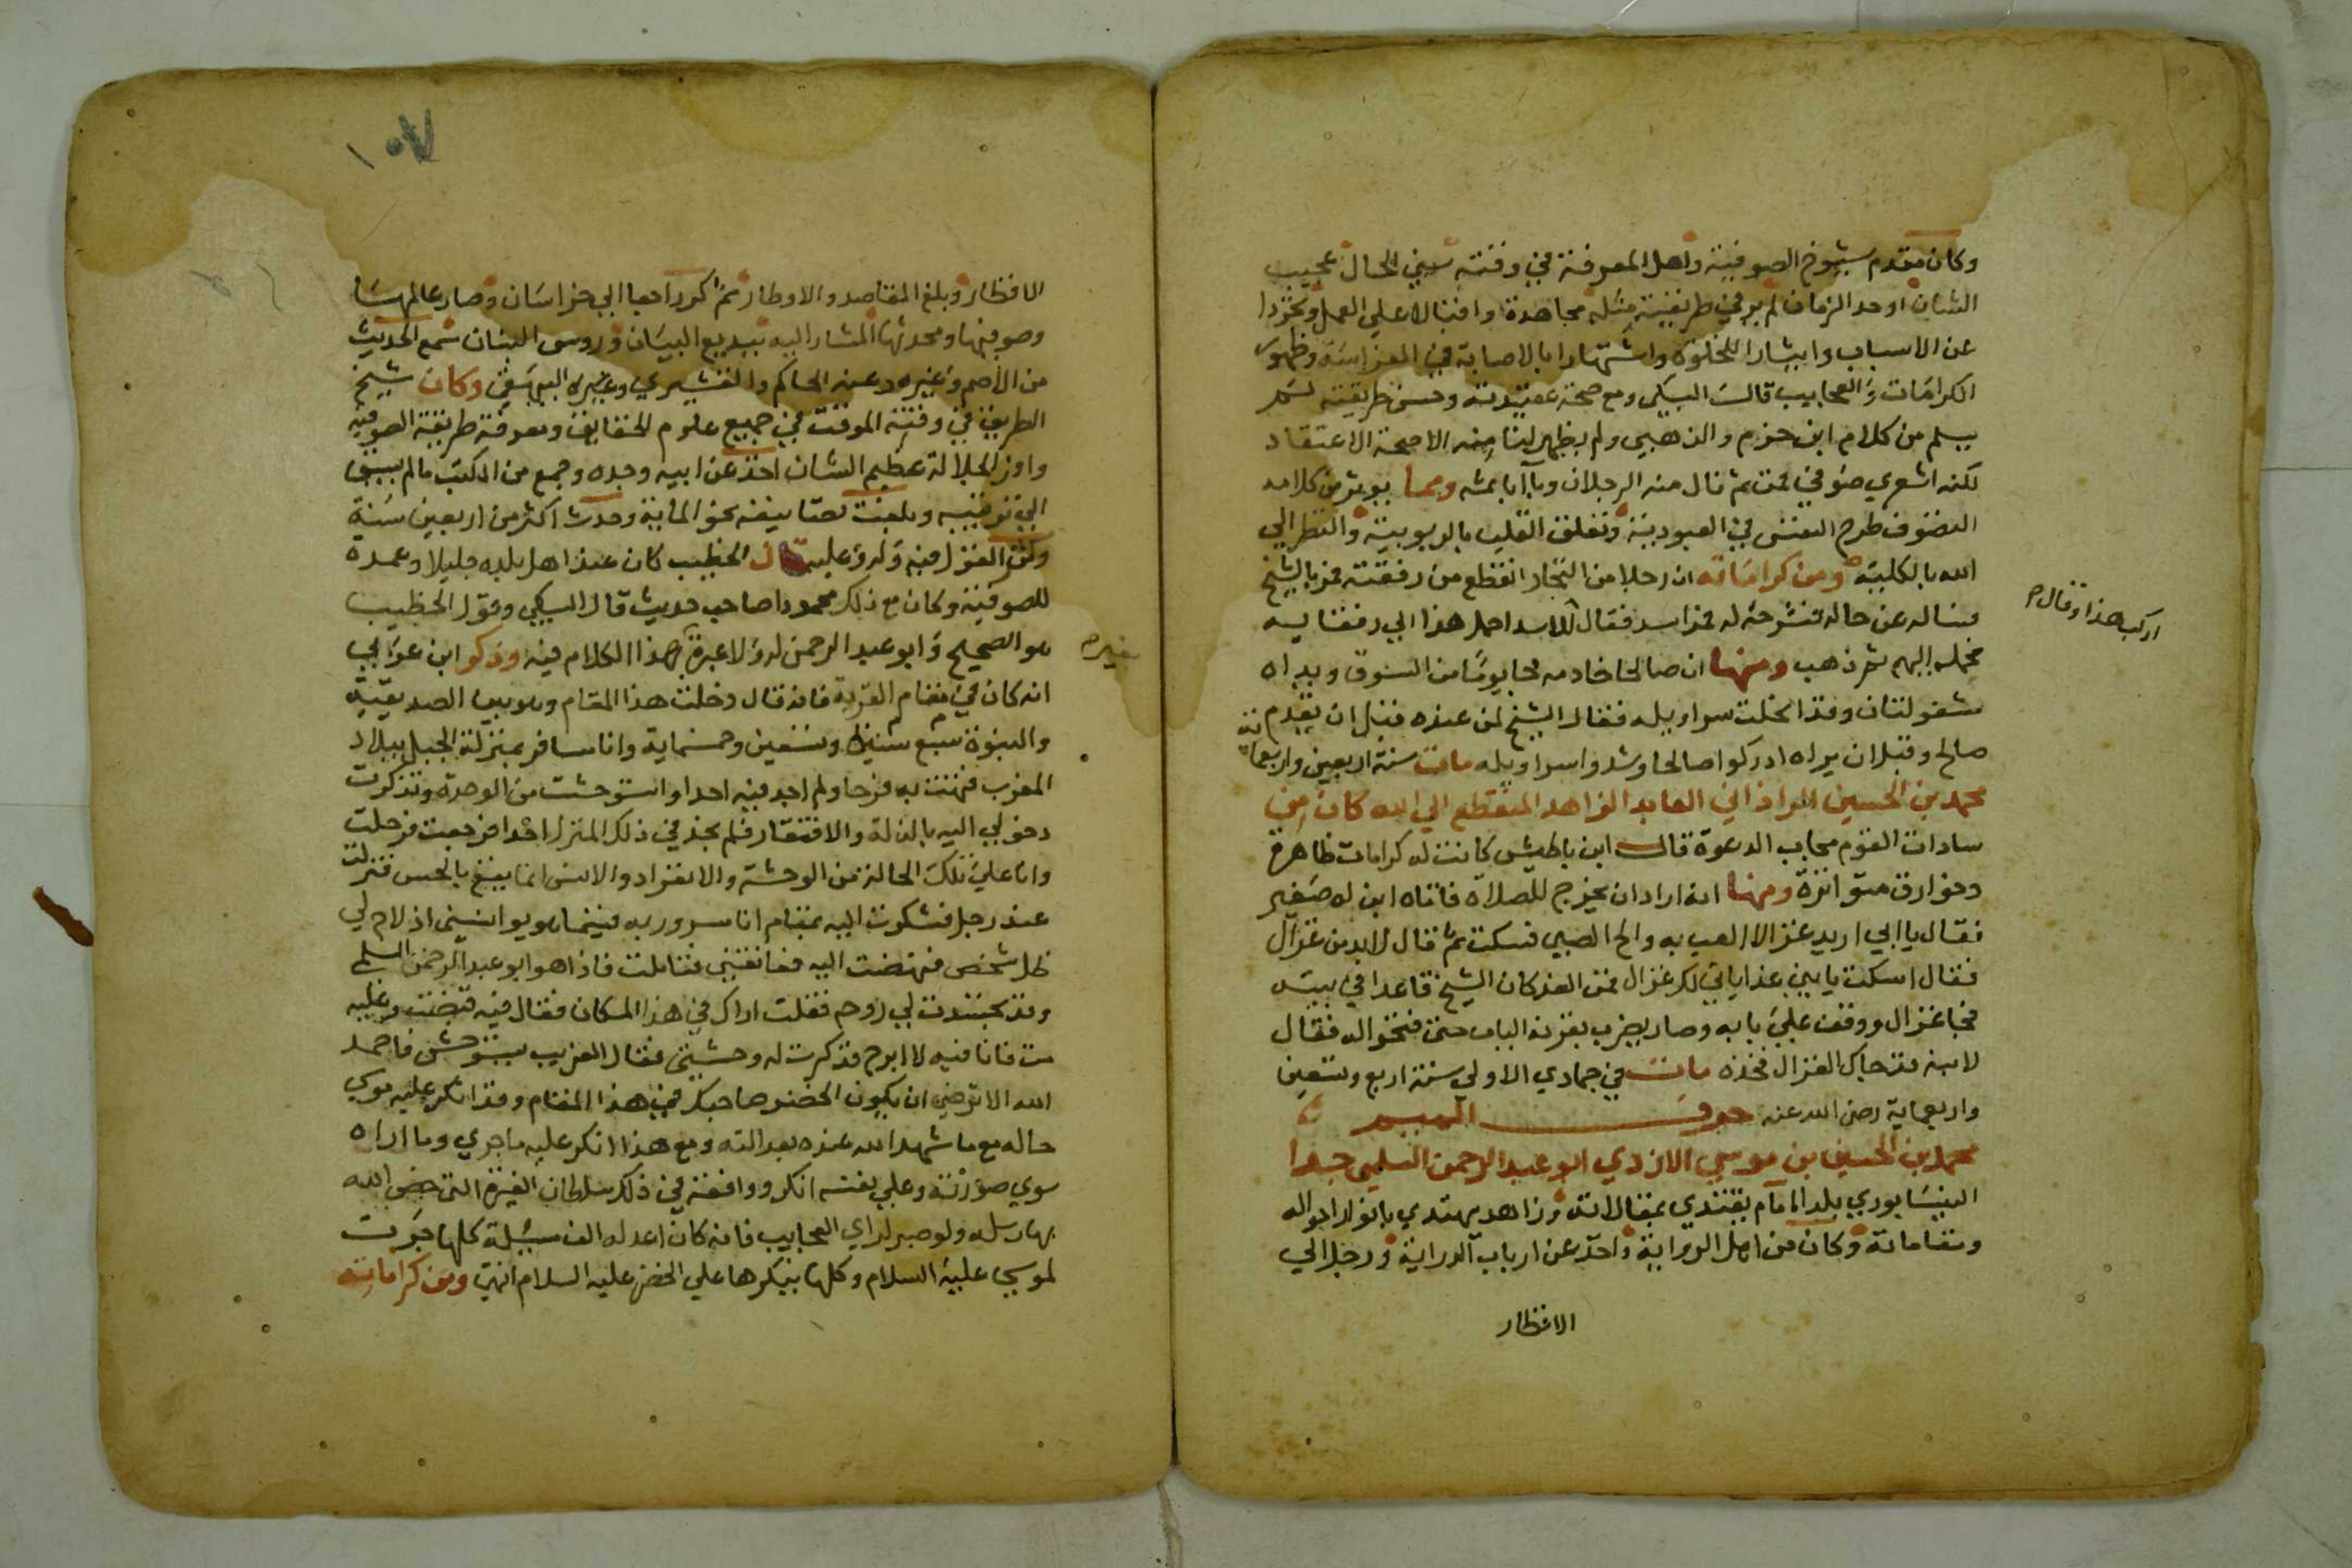 وكان مقدم شيوخ الصوفية واهل المعرفة في وقته سني الحال عجيب
الشان اوحد الزمان لم ير في طريقته مثله مجاهدة واقبالا على العمل وتجردا
عن الاسباب وايثارا للخلوة واشتهارا بالاصابة في الفراسة وظهور
الكرامات والعجايب قال السبكي ومع صحة عقيدته وحسن طريقته لم
يسلم من كلام ابن حزم والذهبي ولم يظهر لنا منه الا صحة الاعتقاد
لكنه اشعري صوفي فمن ثم نال منه الرجلان وبآآ باثمه ومما يوثر من كلامه
التصوف طرح النفس في العبودية وتعلق القلب بالربوبية والنظر الي
الله بالكلية ومن كراماته ان رجلا من التجار انقطع من رفقته فمر بالشيخ
فساله عن حاله فشرحه له فمر اسد فقال للاسد احمل هذا الي رفقايه
اركب هذا وقال
فحمله اليهم ثم ذهب ومنها ان صالحا خادمه جا يوما من السوق ويداه
مشغولتان وقد انحلت سراويله فقال الشيخ لمن عنده قبل ان يقدم
صالح وقبل ان يراه ادركوا صالحا وشدوا سراويله مات سنة اربعين واربعماية
محمد بن الحسين العابد الزاهد المنقطع الي الله كان من
سادات القوم مجاب الدعوة قال ابن باطيش كانت له كرامات ظاهرة
وخوارق متواترة ومنها انه اراد ان يخرج للصلاة فاتاه ابن له صغير
فقال يا ابي اريد غزالا العب به والح الصبي فسكت ثم قال لابد من غزال
فقال اسكت يا بني غدا ياتي لك غزال فمن الغد كان الشيخ قاعدا في بيته
فجا غزال ووقف علي بابه وصار يضرب بقرنه الباب حتى فتحوا له فقال
لابنه قد جاك الغزال فخذه مات في جمادي الاولي سنة اربع وتسعين
واربعماية رضي الله عنه حرف الميم
محمد بن الحسين بن موسي الازدي ابو عبد الرحمن السلمي جدا
النيسابوري بلدا امام يقتدي بمقالاته وزاهد يهتدي بانوار احواله
ومقاماته وكان من اهل الرواية واحد عن ارباب الدراية ورحل الي
الاقطار
١٠٧
الاقطار وبلغ المقاصد والاوطار ثم كر راجعا الي خراسان وصار عالمها
وصوفيها ومحدثها المشار اليه ببديع البيان وروس البنان سمع الحديث
من الاصم وغيره وعنه الحاكم والقشيري وغيره البيهقي وكان شيخ
الطريق في وقته الموفق في جميع علوم الحقايق ومعرفة طريقة الصوفيه
وافر الجلالة عظيم الشان اخذ عن ابيه وجده وجمع من الكتب ما لم يسبق
الي ترتيبه وبلغت تصانيفه نحو الماية وحدث اكثر من اربعين سنة
وكثر القول فيه وله وعليه قال الخطيب كان عند اهل بلده جليلا وعمده
للصوفية وكان مع ذلك محمودا صاحب حديث قال السبكي وقول الخطيب
هو الصحيح وابو عبد الرحمن ثقة ولا عبرة بهذا الكلام فيه وذكر ابن عربي
انه كان في مقام القربة فانه قال دخلت هذا المقام وهو بين الصديقية
والنبوة سنة سبع وتسعين وخمسماية وانا مسافر بمنزلة الجبل ببلاد
المغرب فتهت به فرحا ولم اجد فيه احدا واستوحشت من الوحدة وتذكرت
دخولي اليه بالذلة والافتقار فلم اجد في ذلك المنزل احدا فرجعت فرحلت
وانا علي تلك الحالة من الوحشة والانفراد والانس انما يقع بالجنس فنزلت
عند رجل فشكوت اليه بمقام انا مسرور به فبينما هو يوانسني اذ لاح لي
ظل شخص فنهضت اليه فعانقني فتاملت فاذا هو ابو عبد الرحمن السلمي
وقد تجسدت لي روحه فقلت اراك في هذا المكان فقال فيه قبضت وعليه
مت فانا فيه لا ابرح فذكرت له وحشتي فقال الغريب يستوحش فاحمد
الله الا ترضي ان يكون الخضر صاحبك في هذا المقام وقد انكر عليه موسي
حاله مع ما شهد الله عنده بعدالته ومع هذا انكر عليه ما جري وما اراه
سوي صورته وعلي نفسه انكر واوقفه في ذلك سلطان الغيرة التي خص الله
بها رسله ولو صبر لراي العجايب فانه كان اعد له الف مسئلة كلها جرت
لموسي عليه السلام وكلها ينكرها علي الخضر عليه السلام انتهي ومن كراماته